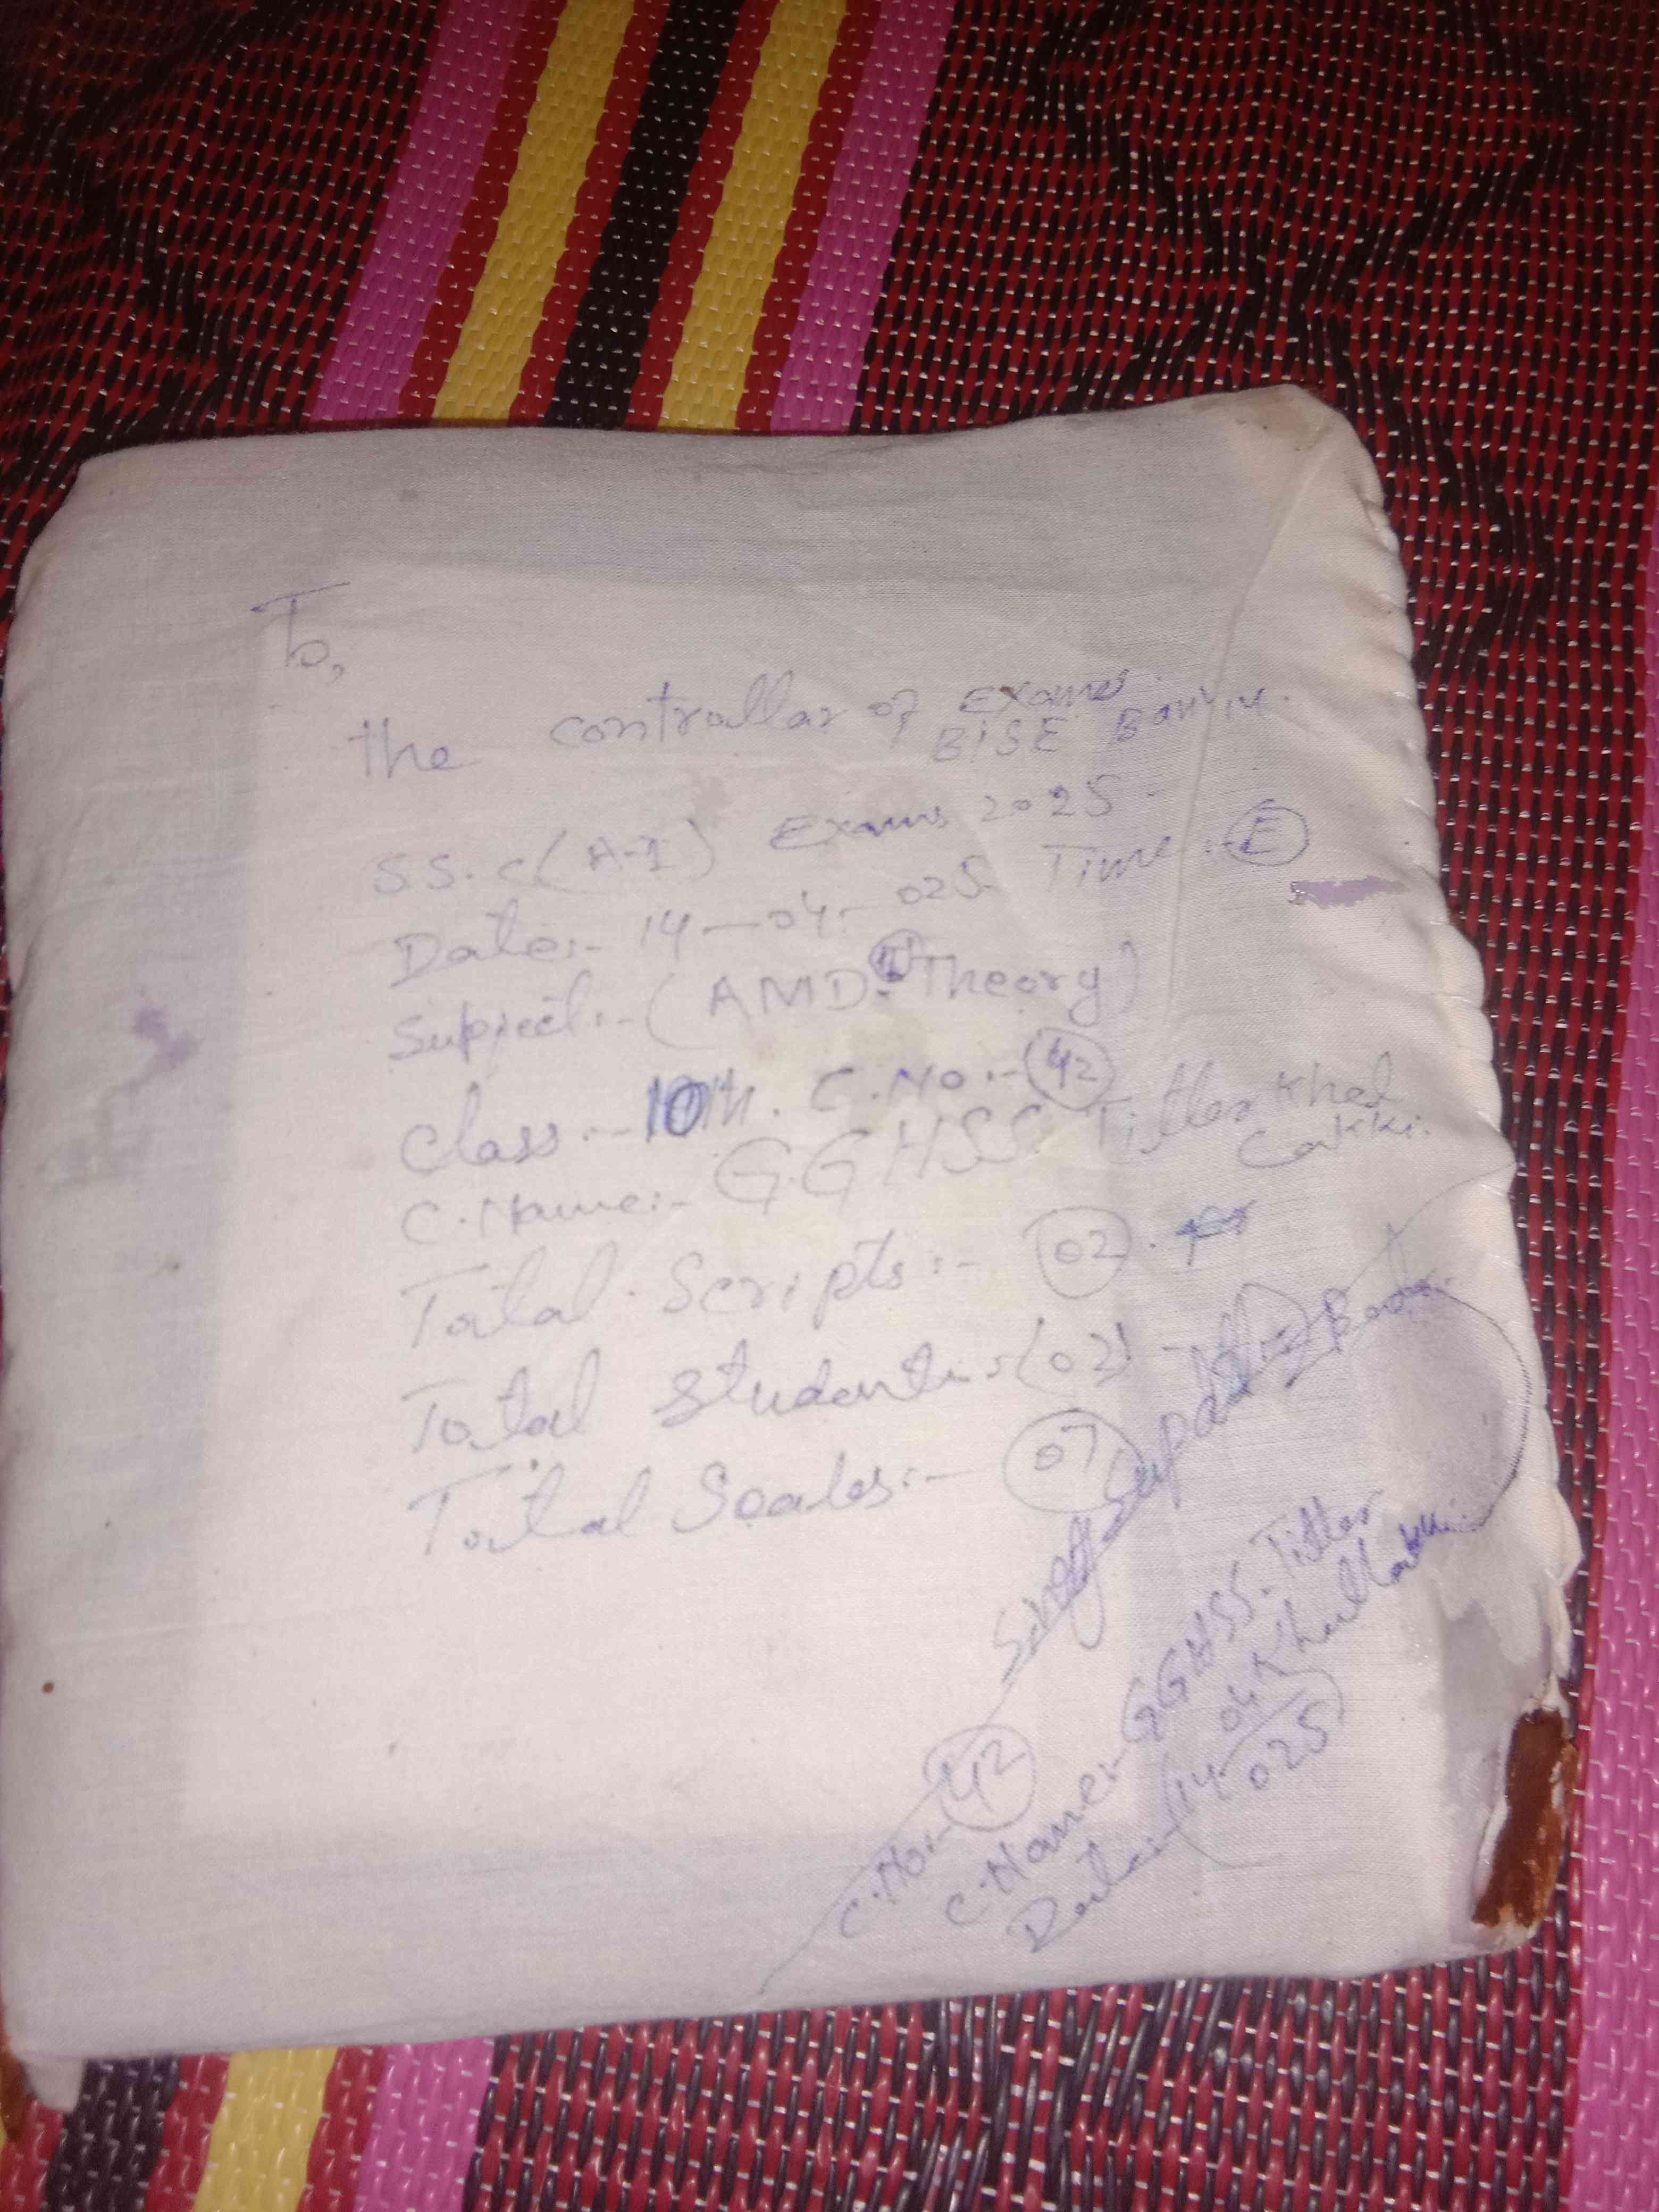 To,
the controllar of Exams.
BISE Bannu.
S.S.C (A-I) Exams 2025.
Date:- 14-04-025 Time:- E
Subject:- (AMD Theory)
Class:- 10th. C.No:- 42
C.Name:- GGHSS Titter Khel
Lakki.
Total Scripts:- 02.
Total Students:- (02)
Total Seales:- 07
C.No:- 42
C.Name:- GGHSS. Titter
Khel Lakki.
Date:- (14/04/025)